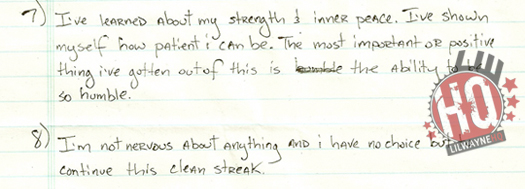 7) I've learned about my strength & inner peace. I've shown
myself how patient i can be. The most important or positive
thing i've gotten out of this is humble the ability to
so humble.
8) I'm not nervous about anything and i have no choice but
continue this clean streak.
HQ
LILWAYNE